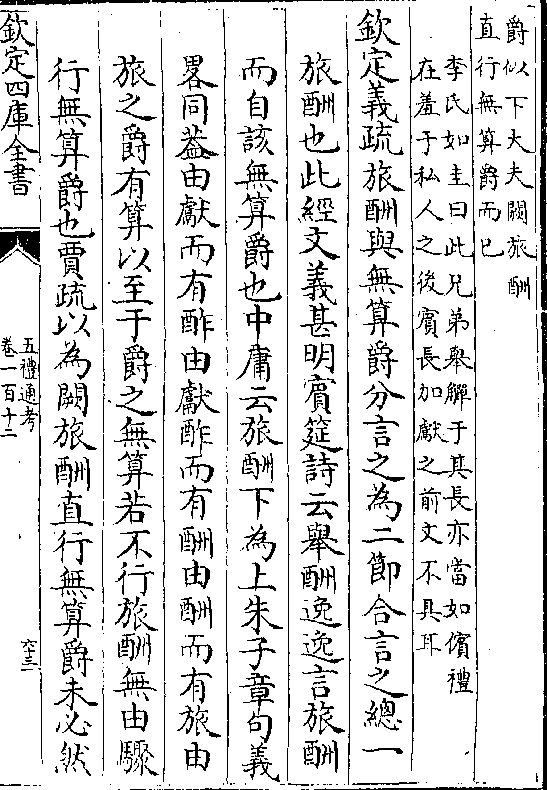 爵似下大夫闕旅酬
直行無算爵而已
李氏如圭曰此兄弟舉觶于其長亦當如儐禮
在羞于私人之後賓長加獻之前文不具耳
欽定義疏旅酬與無算爵分言之為二節合言之總一
旅酬也此經文義甚明賓筵詩云舉酬逸逸言旅酬
而自該無算爵也中庸云旅酬下為上朱子章句義
畧同葢由獻而有酢由獻酢而有酬由酬而有旅由
旅之爵有算以至于爵之無算若不行旅酬無由驟
行無算爵也賈疏以為闕旅酬直行無算爵未必然
欽定四庫全書
五禮通考
卷一百十二
六十三